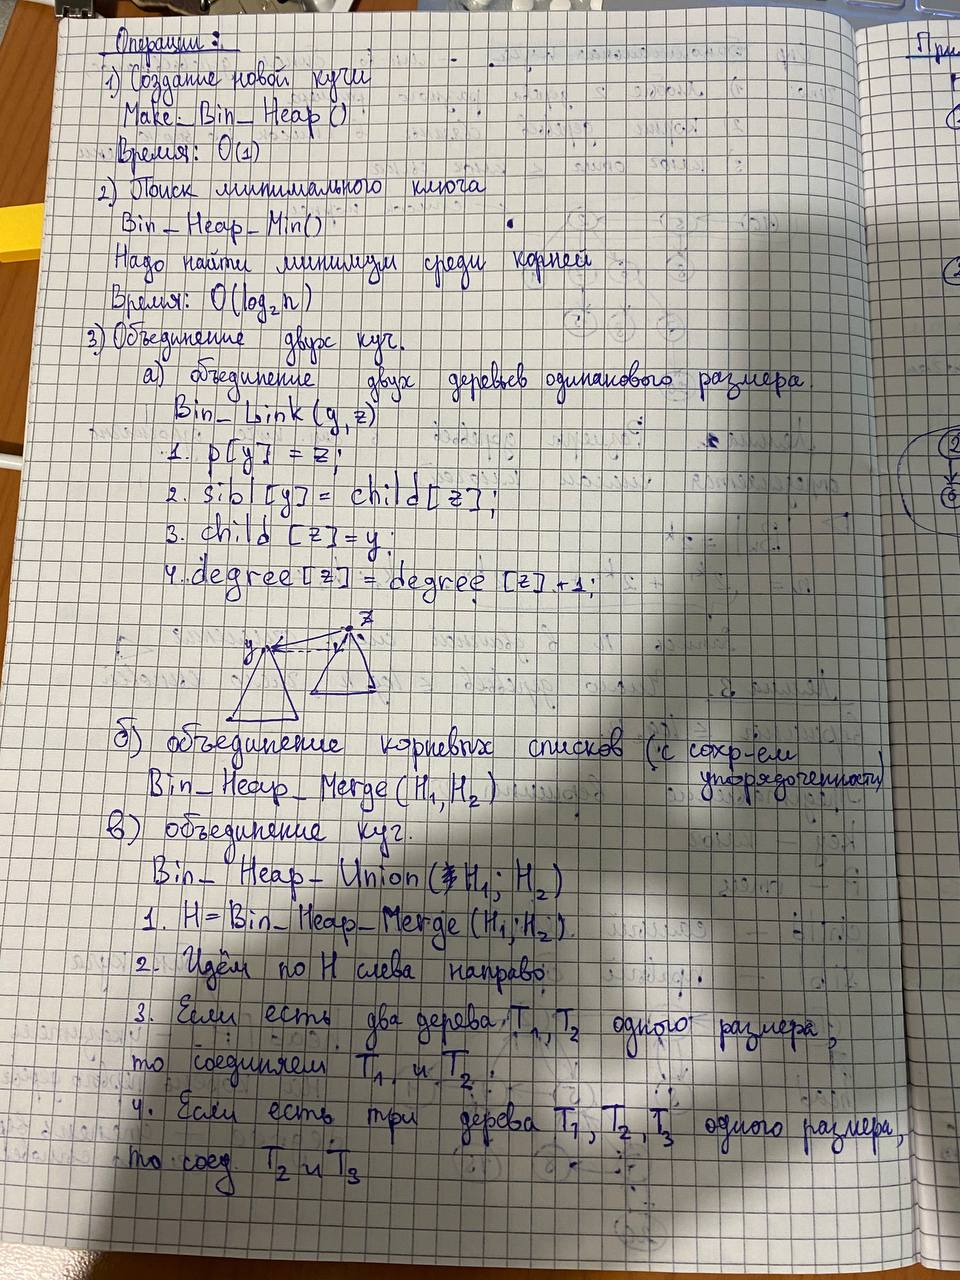 Операции:
1) Создание новой кучи
Make_Bin_Heap()
Время: O(1)
2) Поиск минимального ключа
Bin_Heap_Min()
Надо найти минимум среди корней
Время: O(log₂n)
3) Объединение двух куч.
а) объединение двух деревьев одинакового размера.
Bin_Link(y,z)
1. p[y] = z;
2. sibl[y] = child[z];
3. child[z] = y;
4. degree[z] = degree[z]+1;
y z
б) объединение корневых списков (с сохр-ем упорядоченности)
Bin_Heap_Merge(H₁,H₂)
в) объединение куч.
Bin_Heap_Union(H₁; H₂)
1. H = Bin_Heap_Merge(H₁;H₂).
2. Идём по H слева направо
3. Если есть два дерева T₁, T₂ одного размера,
то соединяем T₁ и T₂.
4. Если есть три дерева T₁, T₂, T₃ одного размера,
то соед. T₂ и T₃
При